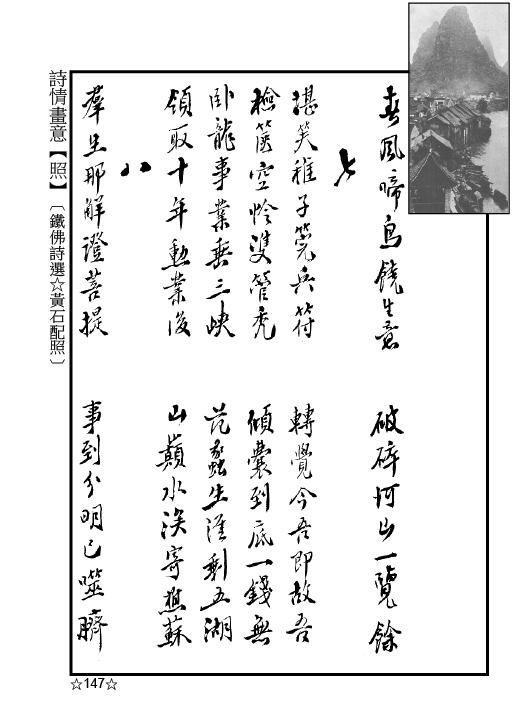 春風啼鳥饒生意　破碎河山一覽餘
七
堪笑稚子竟兵符　轉覺今吾即故吾
檢篋空怜雙管禿　傾囊到底一錢無
卧龍事業垂三峽　范蠡生涯剩五湖
領取十年勳業後　山巔水涘寄樵蘇
八
羣生那解證菩提　事到分明已噬臍
詩情畫意【照】〔鐵佛詩選☆黃石配照〕
☆147☆